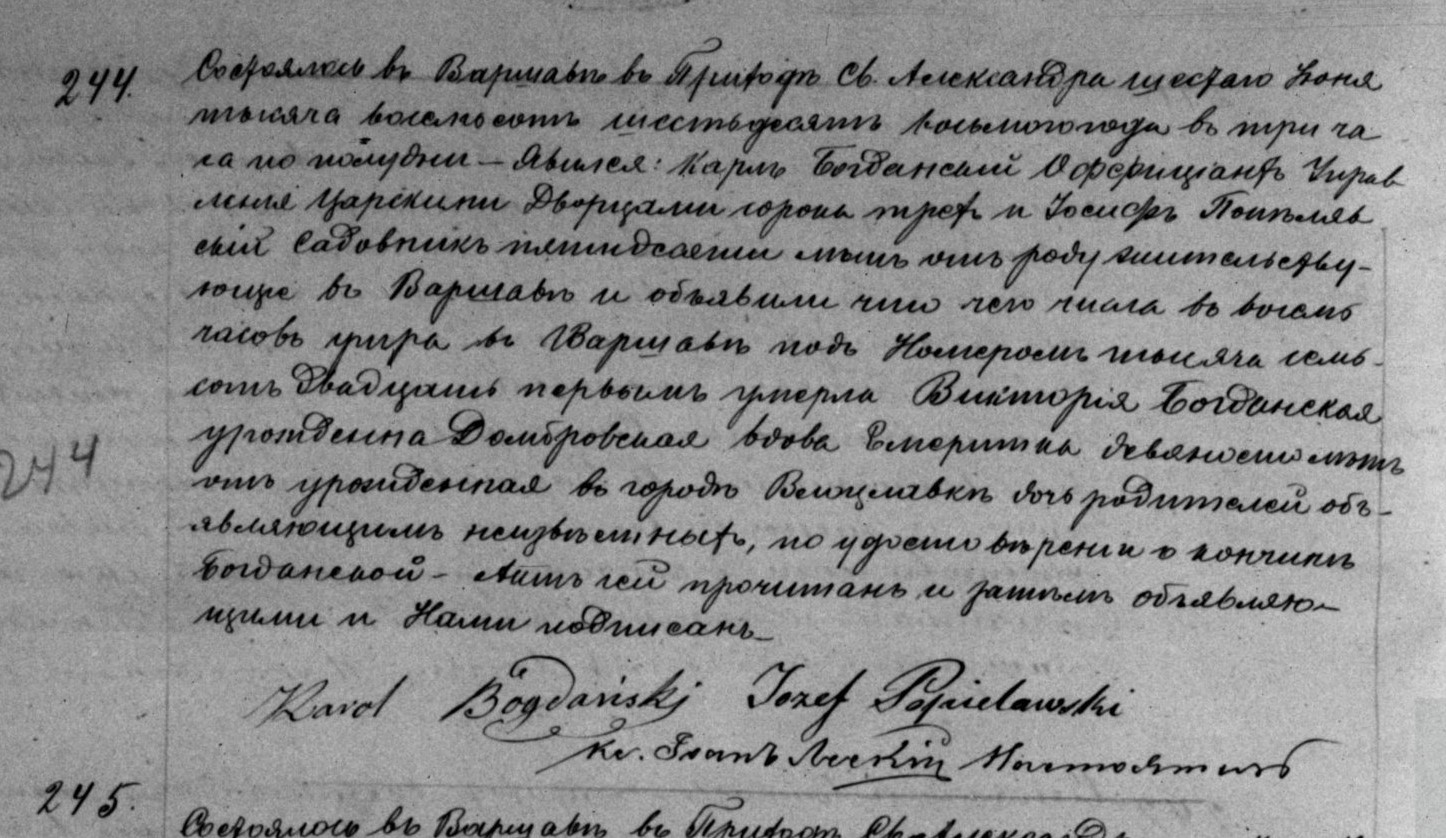 244.
Состоялось въ Варшавѣ въ Приходѣ Св. Александра шестаго Іюня
тысяча восемьсотъ шестьдесятъ восьмого года въ три ча
са по полудни — Явился: Карлъ Богданскій Оффиціантъ Управ
ленія Царскими Дворцами сорока трехъ и Іосифъ Попѣляв
скій Садовникъ пятидсаети лѣтъ отъ роду жительству-
ющіе въ Варшавѣ и объявили что сего числа въ восемь
часовъ утра въ Варшавѣ подъ Номеромъ тысяча семь-
сотъ двадцать первымъ умерла Викторія Богданская
урожденна Домбровская вдова Емеритка девяносто лѣтъ
отъ урожденная въ городѣ Влоцлавкѣ дочь родителей объ-
являющимъ неизвѣстныхъ, по удостовѣреніи о кончинѣ
Богданской — Актъ сей прочитанъ и затѣмъ объявляю-
щими и Нами подписанъ —
Karol Bogdański Jozef Popielawski
Кс. Настоятель
244
245.
Состоялось въ Варшавѣ въ Приходѣ Св. Александра